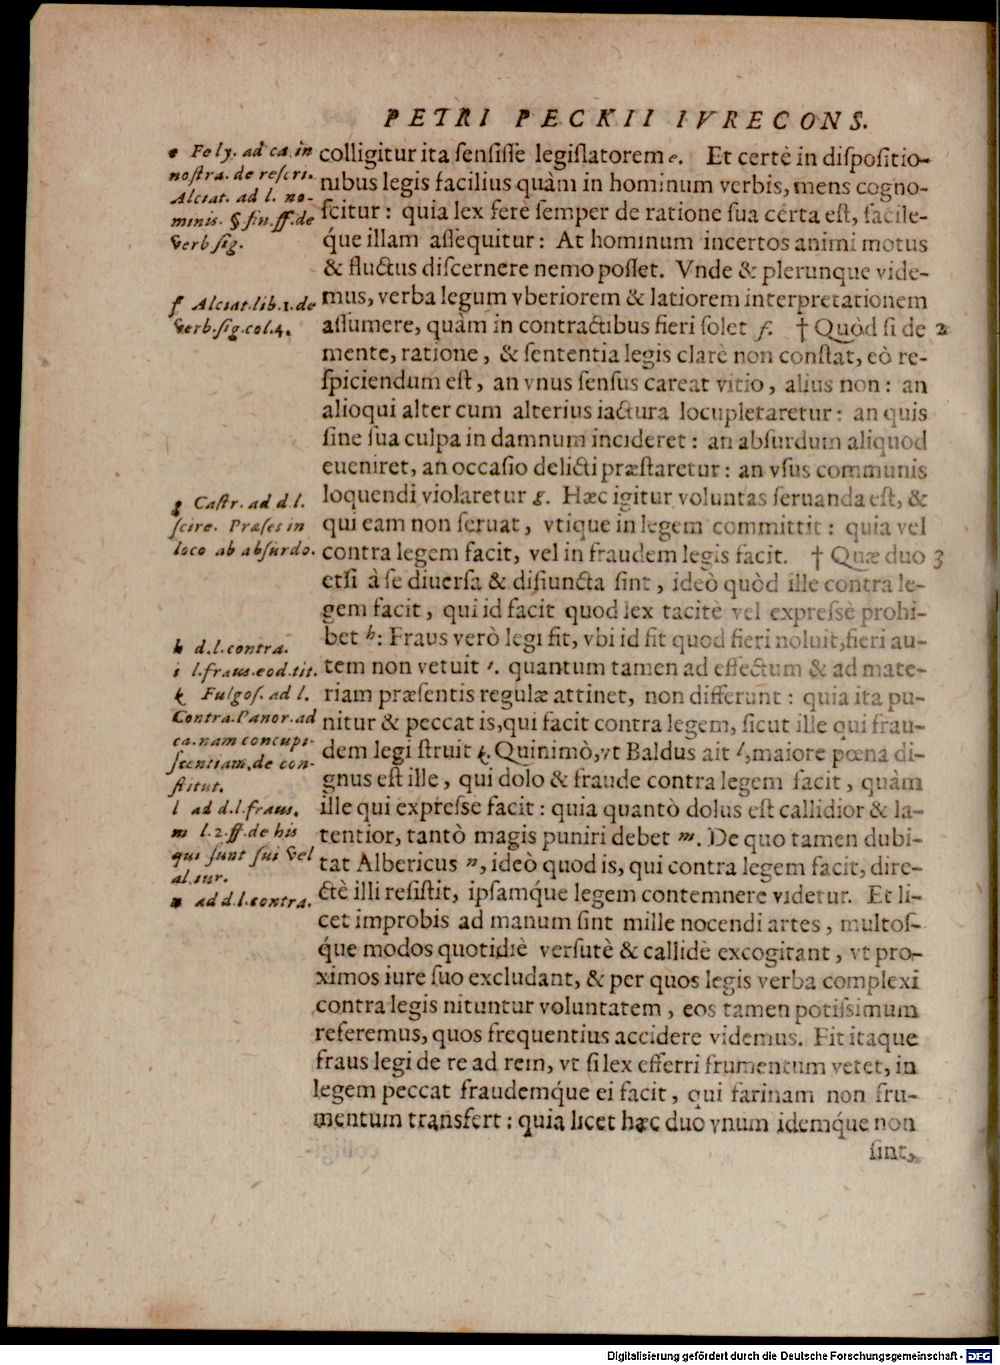 PETRI PECKII IVRECONS.
e Fely. ad ca. in
nostra. de rescri.
Alciat. ad l. no-
minis. § fin. ff. de
verb sig.
f Alciat. lib. 1. de
verb. sig. col. 4.
g Castr. ad d. l.
scire. Præses in
loco ab absurdo.
h d. l. contra.
i l. fraus. eod. tit.
k Fulgos. ad l.
Contra. Panor. ad
ca. nam concupi-
scentiam, de con-
stitut.
l ad d. l. fraus.
m l. 2. ff. de his
qui sunt sui vel
al. iur.
n ad d. l. contra.
colligitur ita sensisse legislatorem e. Et certè in dispositio-
nibus legis facilius quàm in hominum verbis, mens cogno-
scitur : quia lex ferè semper de ratione sua certa est, facile-
q́ue illam assequitur : At hominum incertos animi motus
& fluctus discernere nemo posset. Vnde & plerunque vide-
mus, verba legum vberiorem & latiorem interpretationem
assumere, quàm in contractibus fieri solet f. † Quòd si de 2
mente, ratione, & sententia legis clarè non constat, eò re-
spiciendum est, an vnus sensus careat vitio, alius non : an
alioqui alter cum alterius iactura locupletaretur : an quis
sine sua culpa in damnum incideret : an absurdum aliquod
eueniret, an occasio delicti præstaretur : an vsus communis
loquendi violaretur g. Hæc igitur voluntas seruanda est, &
qui eam non seruat, vtique in legem committit : quia vel
contra legem facit, vel in fraudem legis facit. † Quæ duo 3
etsi à se diuersa & disiuncta sint, ideò quòd ille contra le-
gem facit, qui id facit quod lex tacitè vel expressè prohi-
bet h: Fraus verò legi fit, vbi id fit quod fieri noluit, fieri au-
tem non vetuit i. quantum tamen ad effectum & ad mate-
riam præsentis regulæ attinet, non differunt : quia ita pu-
nitur & peccat is, qui facit contra legem, sicut ille qui frau-
dem legi struit k. Quinimò, vt Baldus ait l, maiore pœna di-
gnus est ille, qui dolo & fraude contra legem facit, quàm
ille qui expresse facit : quia quantò dolus est callidior & la-
tentior, tantò magis puniri debet m. De quo tamen dubi-
tat Albericus n, ideò quod is, qui contra legem facit, dire-
ctè illi resistit, ipsamq́ue legem contemnere videtur. Et li-
cet improbis ad manum sint mille nocendi artes, multos-
q́ue modos quotidiè versutè & callidè excogitant, vt pro-
ximos iure suo excludant, & per quos legis verba complexi
contra legis nituntur voluntatem, eos tamen potissimum
referemus, quos frequentius accidere videmus. Fit itaque
fraus legi de re ad rem, vt si lex efferri frumentum vetet, in
legem peccat fraudemq́ue ei facit, qui farinam non fru-
mentum transfert : quia licet hæc duo vnum idemq́ue non
sint,
Digitalisierung gefördert durch die Deutsche Forschungsgemeinschaft - DFG